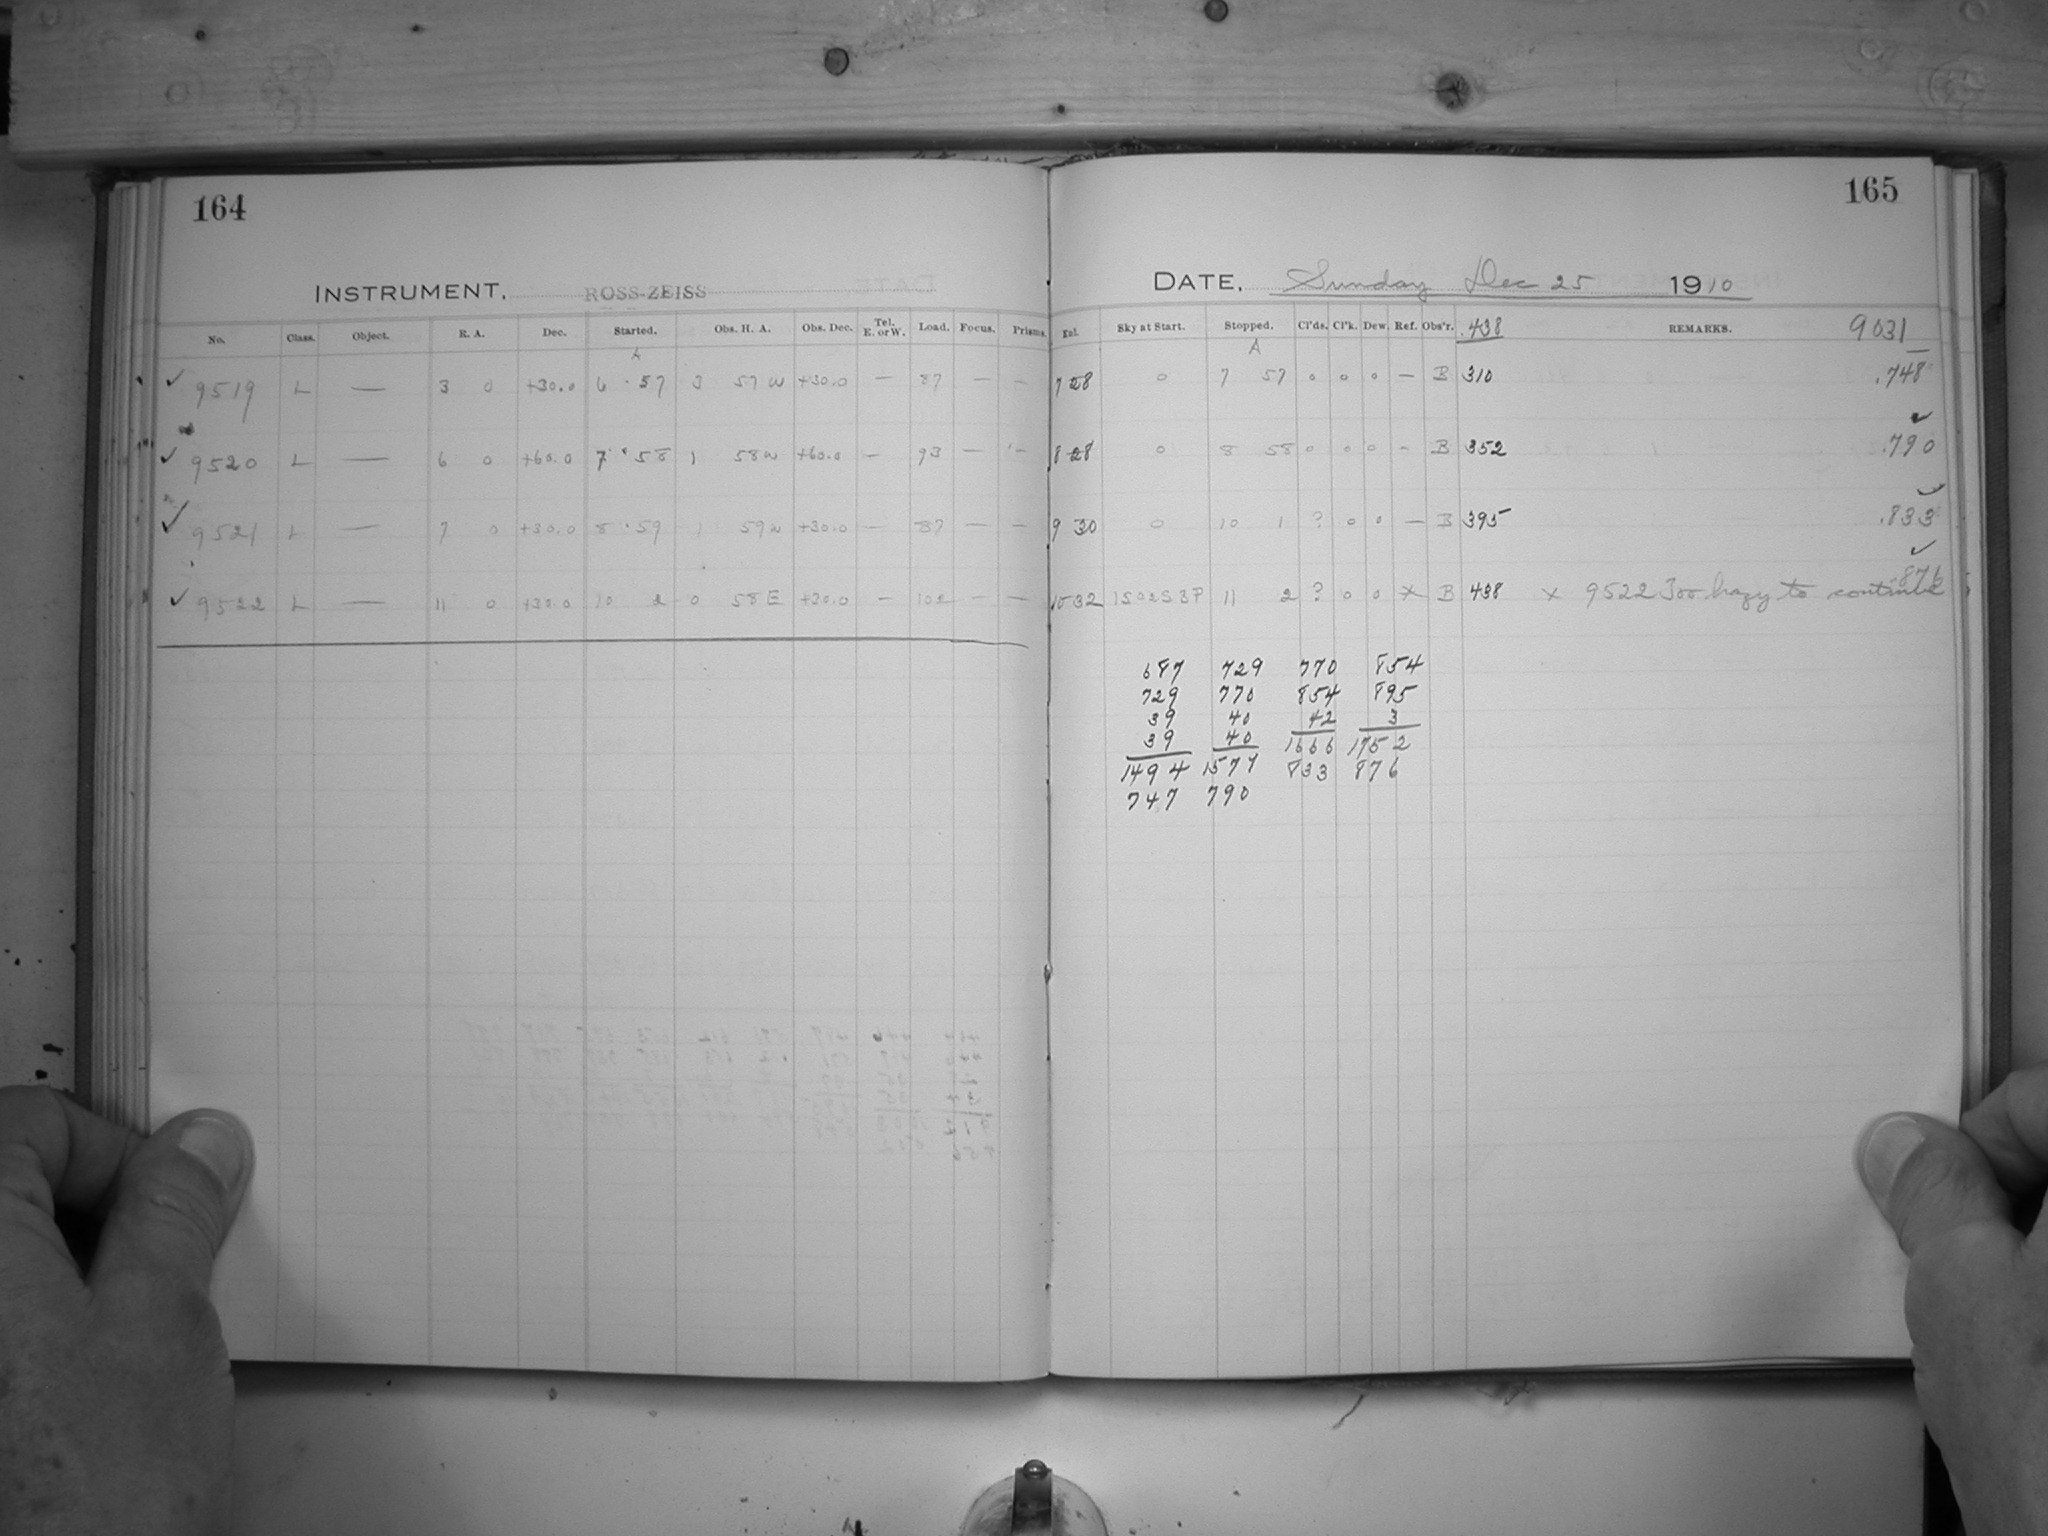 164
165
INSTRUMENT, ROSS-ZEISS
DATE, Sunday Dec 25 1910
No. Class. Object. R. A. Dec. Started. Obs. H. A. Obs. Dec. Tel. E. or W. Load. Focus. Prisms. Exl. Sky at Start. Stopped. Cl'ds. Cl'k. Dew. Ref. Obs'r. .438 REMARKS. 9031
A A
✓ 9519 L — 3 0 +30.0 6 57 3 57 W +30.0 — 87 — — 7 28 0 7 57 0 0 0 — B 310 .748
✓ 9520 L — 6 0 +60.0 7 58 1 58 W +60.0 — 93 — — 8 28 0 8 58 0 0 0 — B 352 ✓ .790
✓ 9521 L — 7 0 +30.0 8 59 1 59 W +30.0 — 87 — — 9 30 0 10 1 ? 0 0 — B 395 ✓ .833
✓ 9522 L — 11 0 +30.0 10 2 0 58 E +30.0 — 102 — — 10 32 1502S37 11 2 ? 0 0 × B 438 × 9522 Too hazy to continue ✓ .876
687 729 770 854
729 770 854 895
39 40 42 3
39 40 1666 1752
1494 1577 833 876
747 790